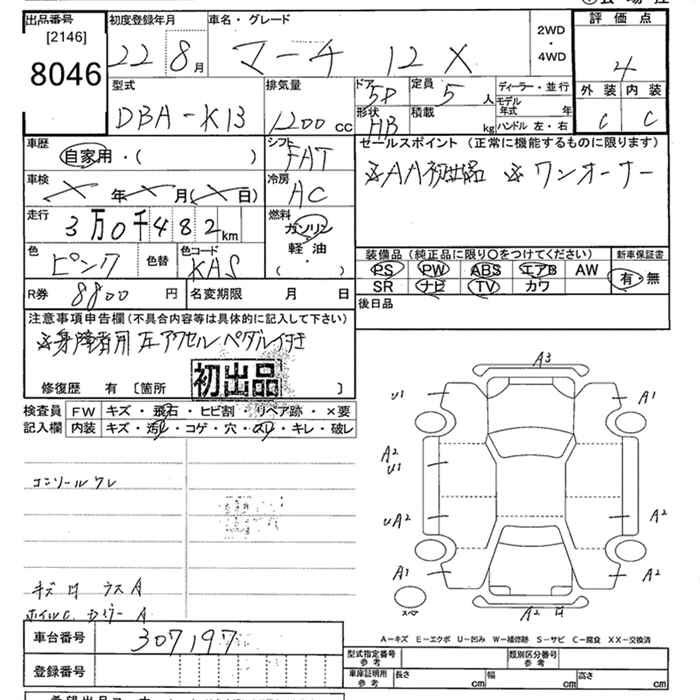 出品番号
[2146]
8046
初度登録年月
22 8月
車名・グレード
マーチ 12 X
2WD
・
4WD
評価点
4
外装 内装
C C
型式
DBA-K13
排気量
1200 cc
ドア
5D
形状
HB
定員
5人
積載
kg
ディーラー・並行
モデル年式 年
ハンドル 左・右
車歴
自家用・( )
シフト
FAT
車検
年 月( 日)
冷房
AC
走行
3万0千482km
燃料
ガソリン
・
軽油
( ・ )
色
ピンク
色替
色コード
KAS
R券 8800 円
名変期限 月 日
セールスポイント (正常に機能するものに限ります)
※AA初出品 ※ワンオーナー
装備品(純正品に限り○をつけてください)
PS PW ABS エアB AW
SR ナビ TV カワ
新車保証書
有・無
後日品
注意事項申告欄(不具合内容等は具体的に記入して下さい)
※身障者用 左アクセルペダル付き
初出品
修復歴 有 〔箇所 〕
検査員記入欄
FW キズ・飛石・ヒビ割・リペア跡・×要
内装 キズ・汚レ・コゲ・穴・スリ・キレ・破レ
コンソールワレ
A3
U1
A1
A2
U1
UA2
A2
A1
A2
A2
スペ
車台番号 307197
登録番号
A-キズ E-エクボ U-凹み W-補修跡 S-サビ C-腐食 XX-交換済
型式指定番号
参考
類別区分番号
参考
車庫証明用
参考
長さ cm
幅 cm
高さ cm